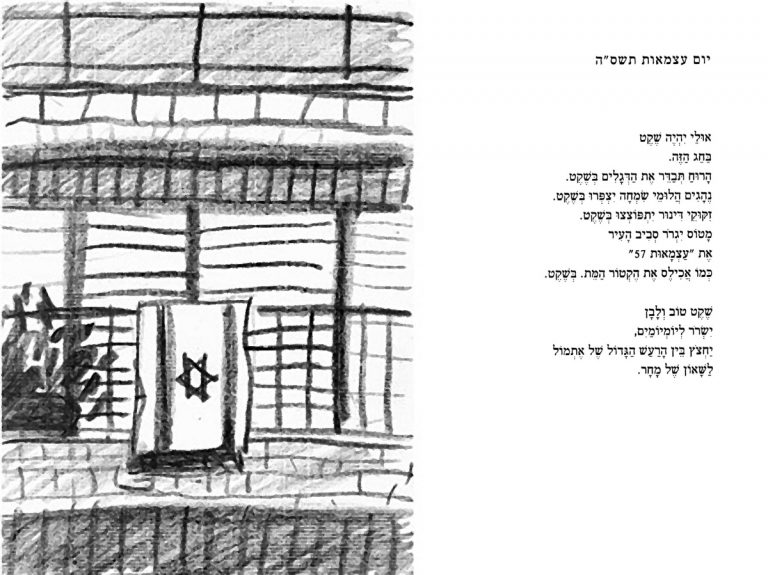 יום עצמאות תשס"ה
אוּלַי יִהְיֶה שֶׁקֶט
בַּחַג הַזֶּה.
הָרוּחַ תְּבַדֵּר אֶת הַדְּגָלִים בְּשֶׁקֶט.
נֶהָגִים הֲלוּמֵי שִׂמְחָה יִצְפְּרוּ בְּשֶׁקֶט.
זִקּוּקֵי דִּינוּר יִתְפּוֹצְצוּ בְּשֶׁקֶט.
מָטוֹס יִגְרֹר סְבִיב הָעִיר
אֶת "עַצְמָאוּת 57"
כְּמוֹ אֲכִילֶס אֶת הֶקְטוֹר הַמֵּת. בְּשֶׁקֶט.
שֶׁקֶט טוֹב וְלָבָן
יִשְׂרֹר לְיוֹמְיוֹמַיִם,
יַחְצֹץ בֵּין הָרַעַשׁ הַגָּדוֹל שֶׁל אֶתְמוֹל
לַשָּׁאוֹן שֶׁל מָחָר.